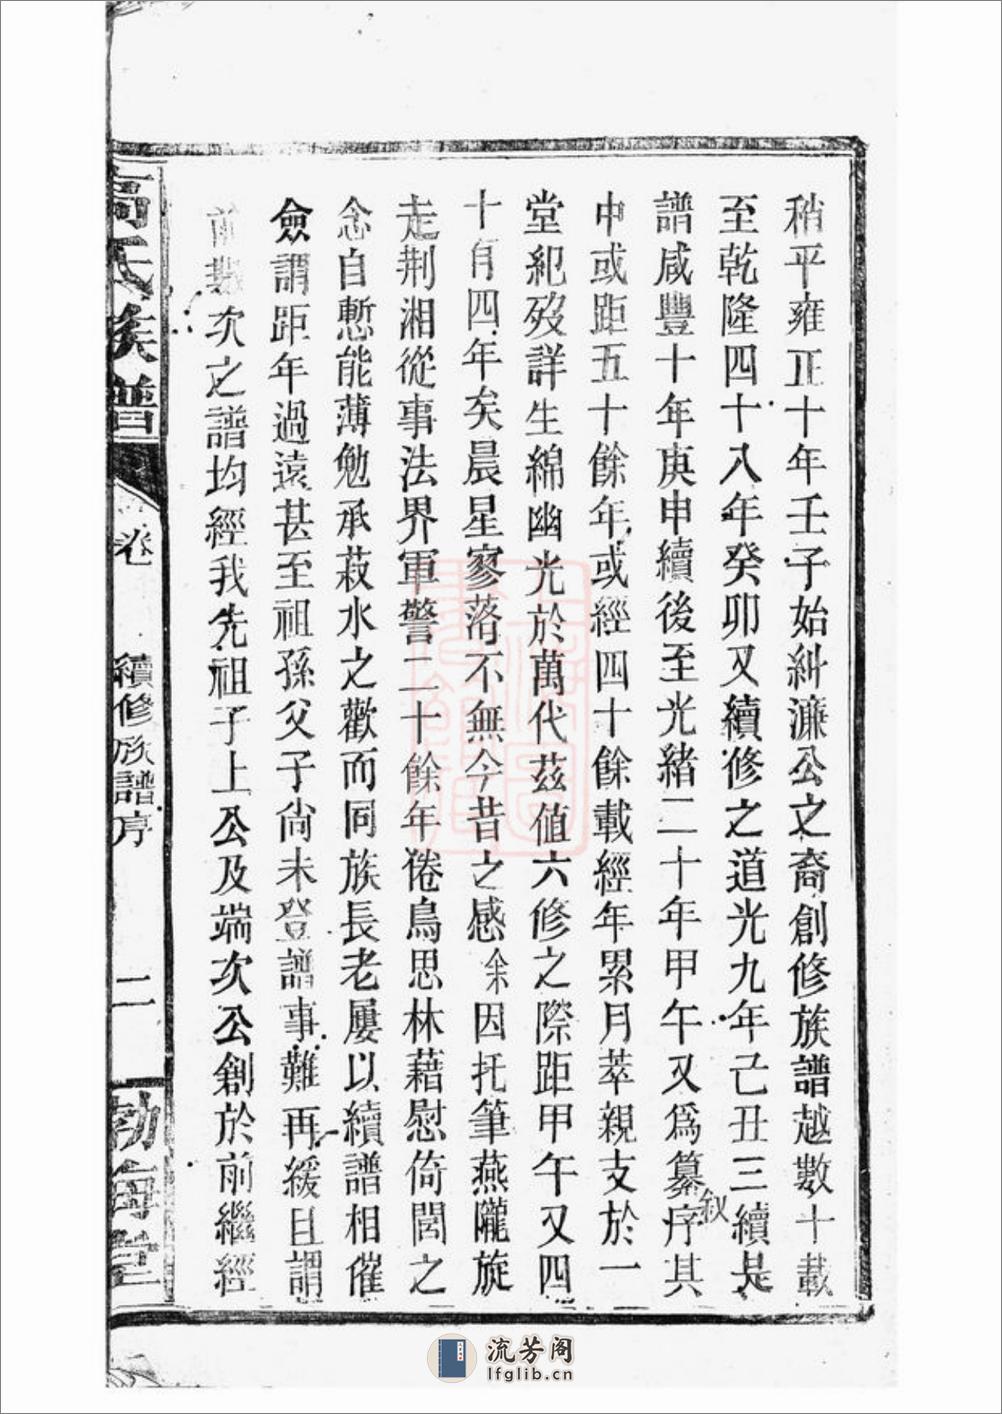 稍平雍正十年壬子始糾濂公之裔創修族譜越數十載
至乾隆四十八年癸卯又續修之道光九年己丑三續是
譜咸豐十年庚申續後至光緒二十年甲午又爲纂序其
叙
中或距五十餘年或經四十餘載經年累月萃親支於一
堂紀歿詳生綿幽光於萬代茲值六修之際距甲午又四
十有四年矣晨星寥落不無今昔之感余因托筆燕隴旋
走荆湘從事法界軍警二十餘年倦鳥思林藉慰倚閭之
念自慙能薄勉承菽水之歡而同族長老屢以續譜相催
僉謂距年過遠甚至祖孫父子尙未登譜事難再緩且謂
前數次之譜均經我先祖子上公及端次公創於前繼經
高氏族譜
卷
續修族譜序
二
勃海堂
流芳阁
lfglib.cn